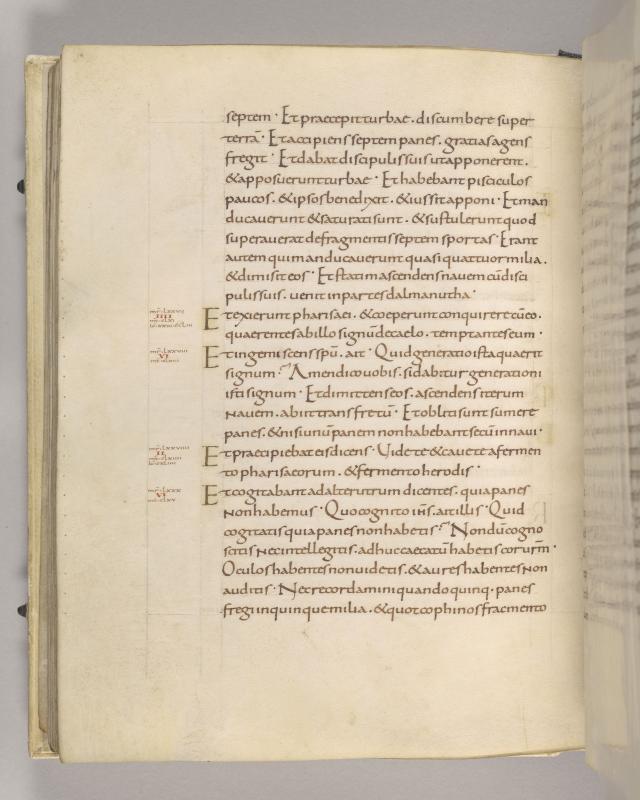 septem · Et praecepit turbae . discumbere super
terrā · Et accipiens septem panes . gratias agens
fregit · Et dabat discipulis suis ut apponerent .
& apposuerunt turbae · Et habebant pisciculos
paucos . & ipsos benedixit . & iussit apponi · Et man
ducauerunt & saturati sunt . & sustulerunt quod
superauerat de fragmentis septem sportas · Erant
autem qui manducauerunt quasi quattuor milia .
& dimisit eos · Et statim ascendens nauem cū disci
pulis suis . uenit in partes dalmanutha ·
Et exierunt pharisaei . & coeperunt conquirere cū eo .
quaerentes ab illo signū de caelo . temptantes eum ·
Et ingemiscens spū . ait · Quid generatio ista quaerit
signum · Amen dico uobis . si dabitur generationi
isti signum · Et dimittens eos . ascendens iterum
nauem . abiit trans fretū · Et obliti sunt sumere
panes . & nisi unū panem non habebant secū in naui ·
Et praecipiebat eis dicens · Uidete & cauete a fermen
to pharisaeorum . & fermento herodis ·
Et cogitabant ad alterutrum dicentes . quia panes
non habemus · Quo cognito ihs̄ . ait illis · Quid
cogitatis quia panes non habetis · Nondū cogno
scitis nec intellegitis . adhuc caecatū habetis cor urm̄ ·
Oculos habentes non uidetis . & aures habentes non
auditis · Nec recordamini quando quinq · panes
fregi in quinque milia . & quot cophinos fracmento